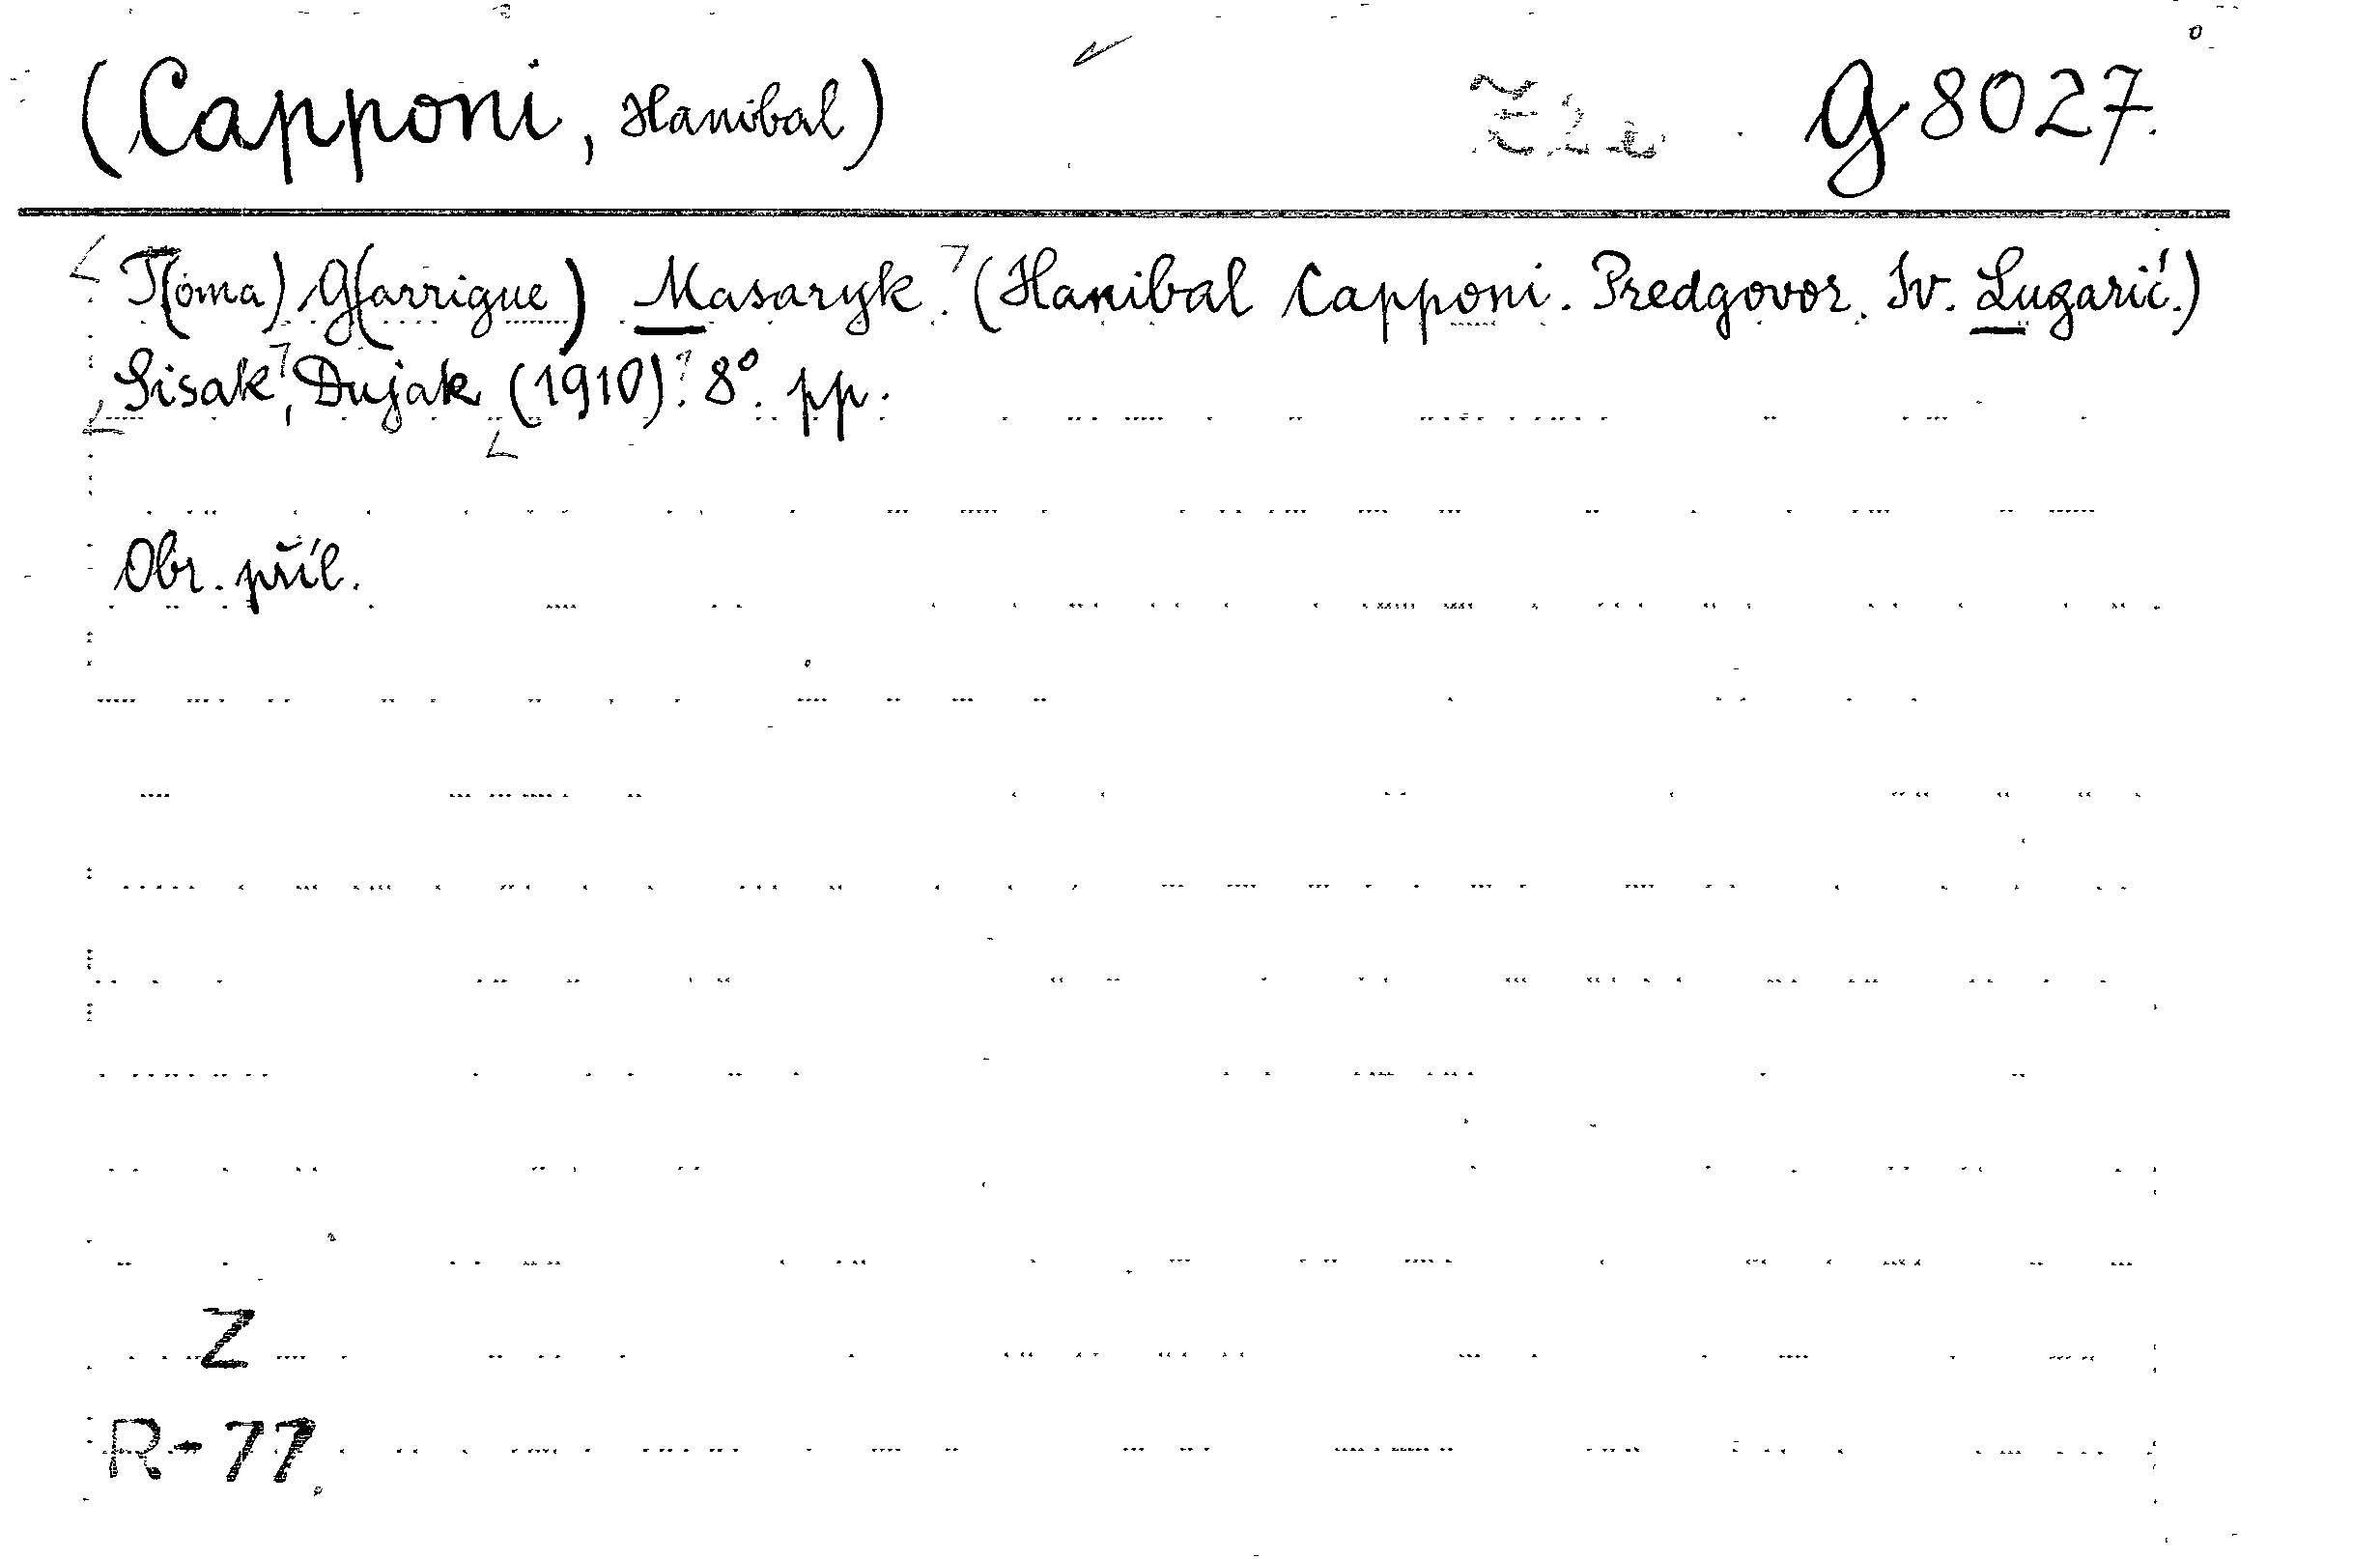 (Capponi, Hanibal) g 8027.
T(oma) G(arrigue) Masaryk. (Hanibal Capponi. Predgovor. Iv. Lugarić.)
Sisak, Dujak (1910). 8° pp.
Obr. příl.
Z
R-77